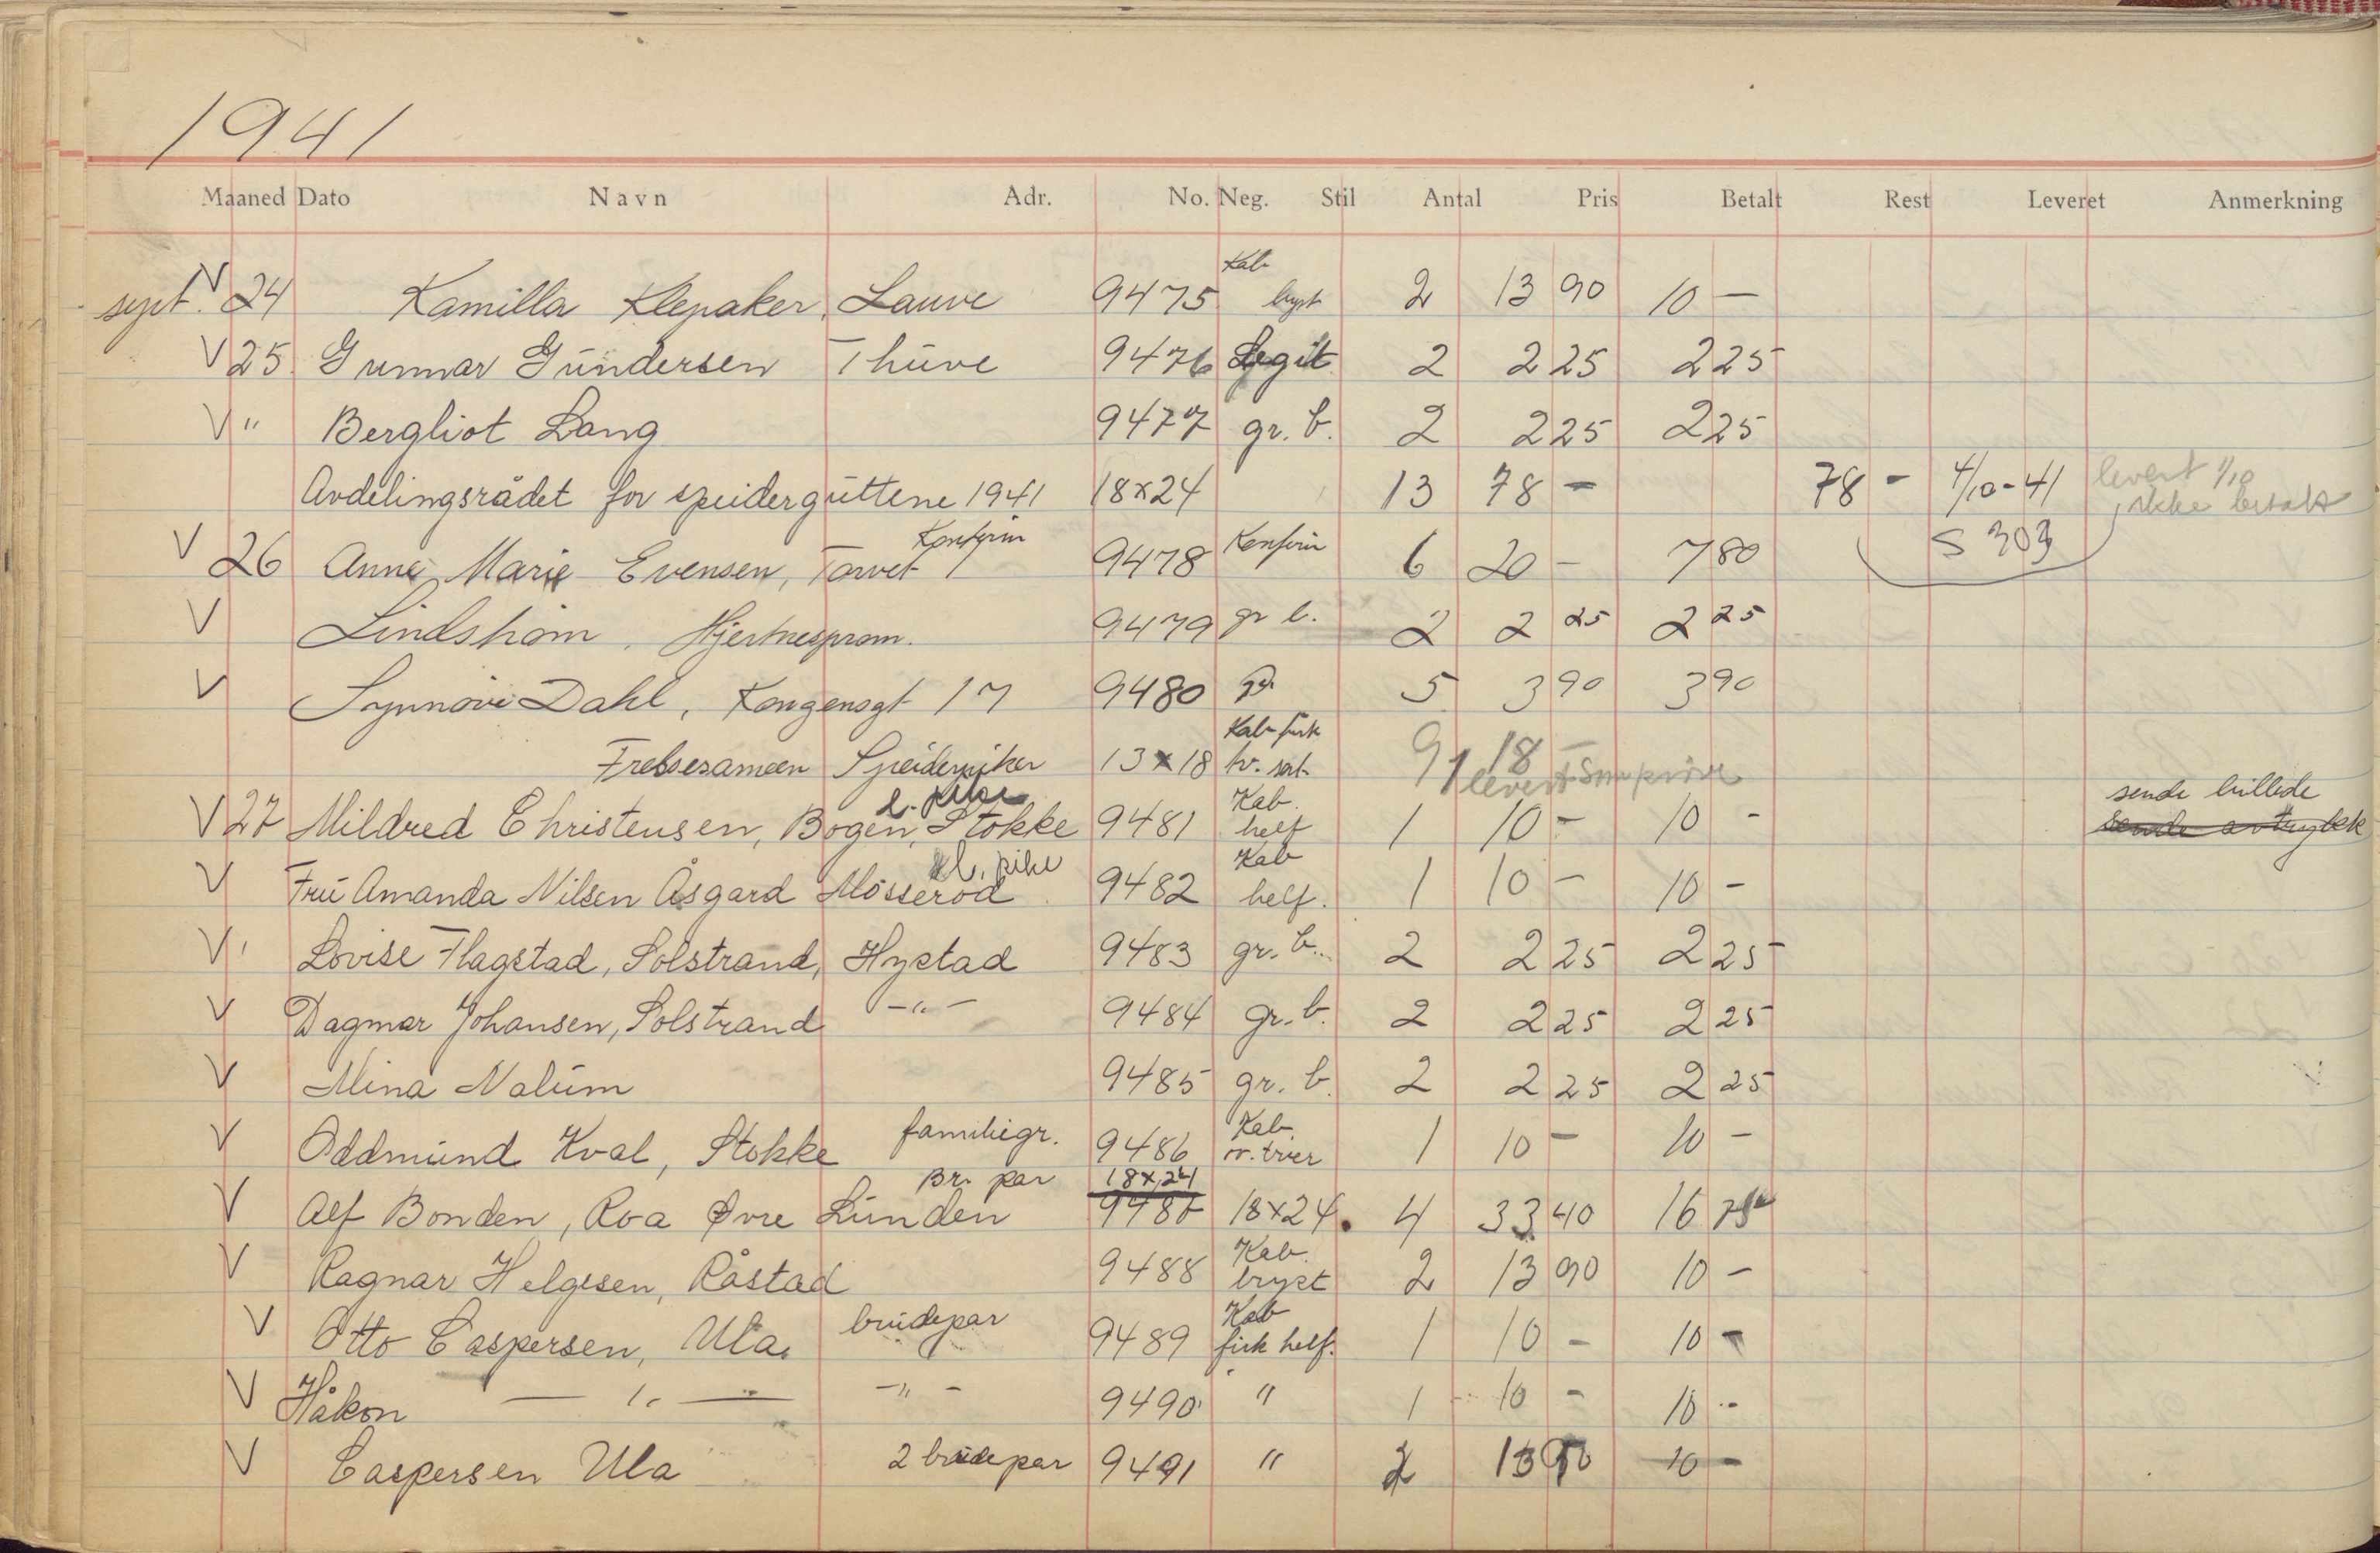 1941
Maaned Dato Navn Adr. No. Neg. Stil Antal Pris Betalt Rest Leveret Anmerkning
sept. V 24 Kamilla Klepaker, Lauve 9475 Kab bryst 2 13 90 10 —
V 25 Gunnar Gundersen Thuve 9476 Legit 2 2 25 2 25
V " Bergliot Lang 9477 gr. b. 2 2 25 2 25
Avdelingsrådet for speiderguttene 1941 18x24 13 78 — 78 - 4/10-41 levert 1/10 ikke betalt
S 303
V 26 Anne Marie Evensen, Torvet Konfirm 9478 Konfirm 6 20 — 7 80
V Lindshom, Hjertnesprom. 9479 gr b. 2 2 25 2 25
V Synnøve Dahl, Kongensgt 17 9480 5 3 90 3 90
Speiderpiker 13x18 Kab firk 9 18 —
1 levert som prøve
V 27 Mildred Christensen, Bogen, Stokke 9481 Kab. helf 1 10 - 10 - sende billede
sende avtrykk
V Fru Amanda Nilsen Åsgard Mosserød kl. pike 9482 Kab helf. 1 10 — 10 -
V Lovise Flagstad, Solstrand, Hystad 9483 gr. b. 2 2 25 2 25
V Dagmar Johansen, Solstrand -"- 9484 gr. b. 2 2 25 2 25
V Mina Nalum 9485 gr. b 2 2 25 2 25
V Oddmund Kval, Stokke familiegr. 9486 Kab. 1 10 — 10 —
V Alf Bonden, Roa Øvre Lunden Br. par 18x24 18x24. 4 33 40 16 75
V Ragnar Helgesen, Råstad 9488 Kab. bryst 2 13 90 10 —
V Otto Caspersen, Ula. brudepar 9489 Kab firk helf. 1 10 — 10 -
V Håkon — " — -"- 9490 " 1 10 - 10 -
V Caspersen Ula 2 brudepar 9491 " 2 13 90 10 —